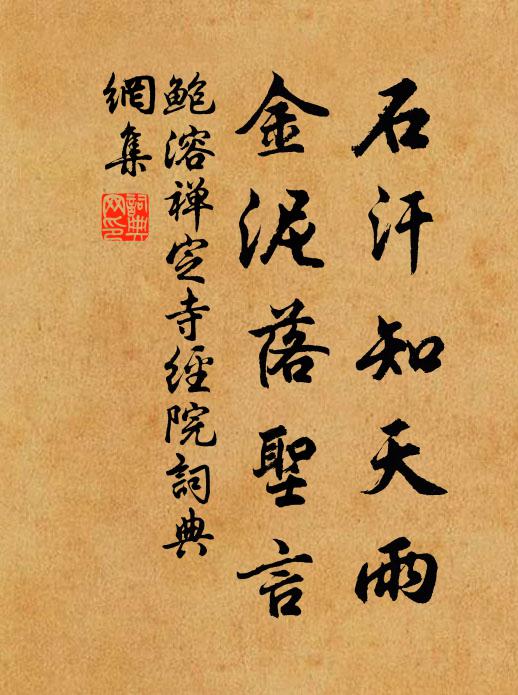 石汗知天雨
金泥落聖言
鲍溶禅定寺經院詞典
網集
詞典
网印